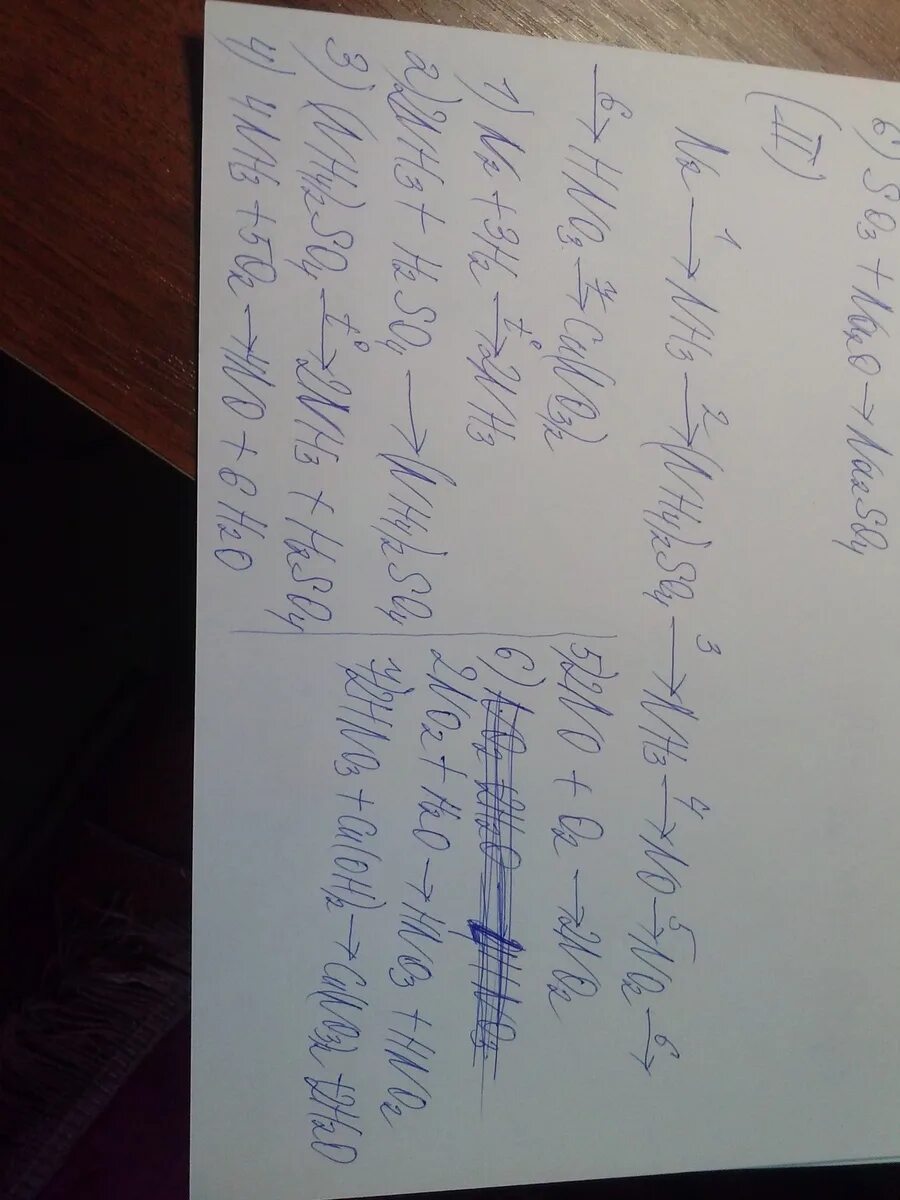 6) SO3 + Na2O → Na2SO4
(II)
N2 →1 NH3 →2 (NH4)2SO4 →3 NH3 →4 NO →5 NO2 →6
→6 HNO3 →7 Cu(NO3)2
1) N2 + 3H2 →t° 2NH3
2) 2NH3 + H2SO4 → (NH4)2SO4
3) (NH4)2SO4 →t° 2NH3 + H2SO4
4) 4NH3 + 5O2 → 4NO + 6H2O
5) 2NO + O2 → 2NO2
6)
2NO2 + H2O → HNO3 + HNO2
7) 2HNO3 + Cu(OH)2 → Cu(NO3)2 + 2H2O